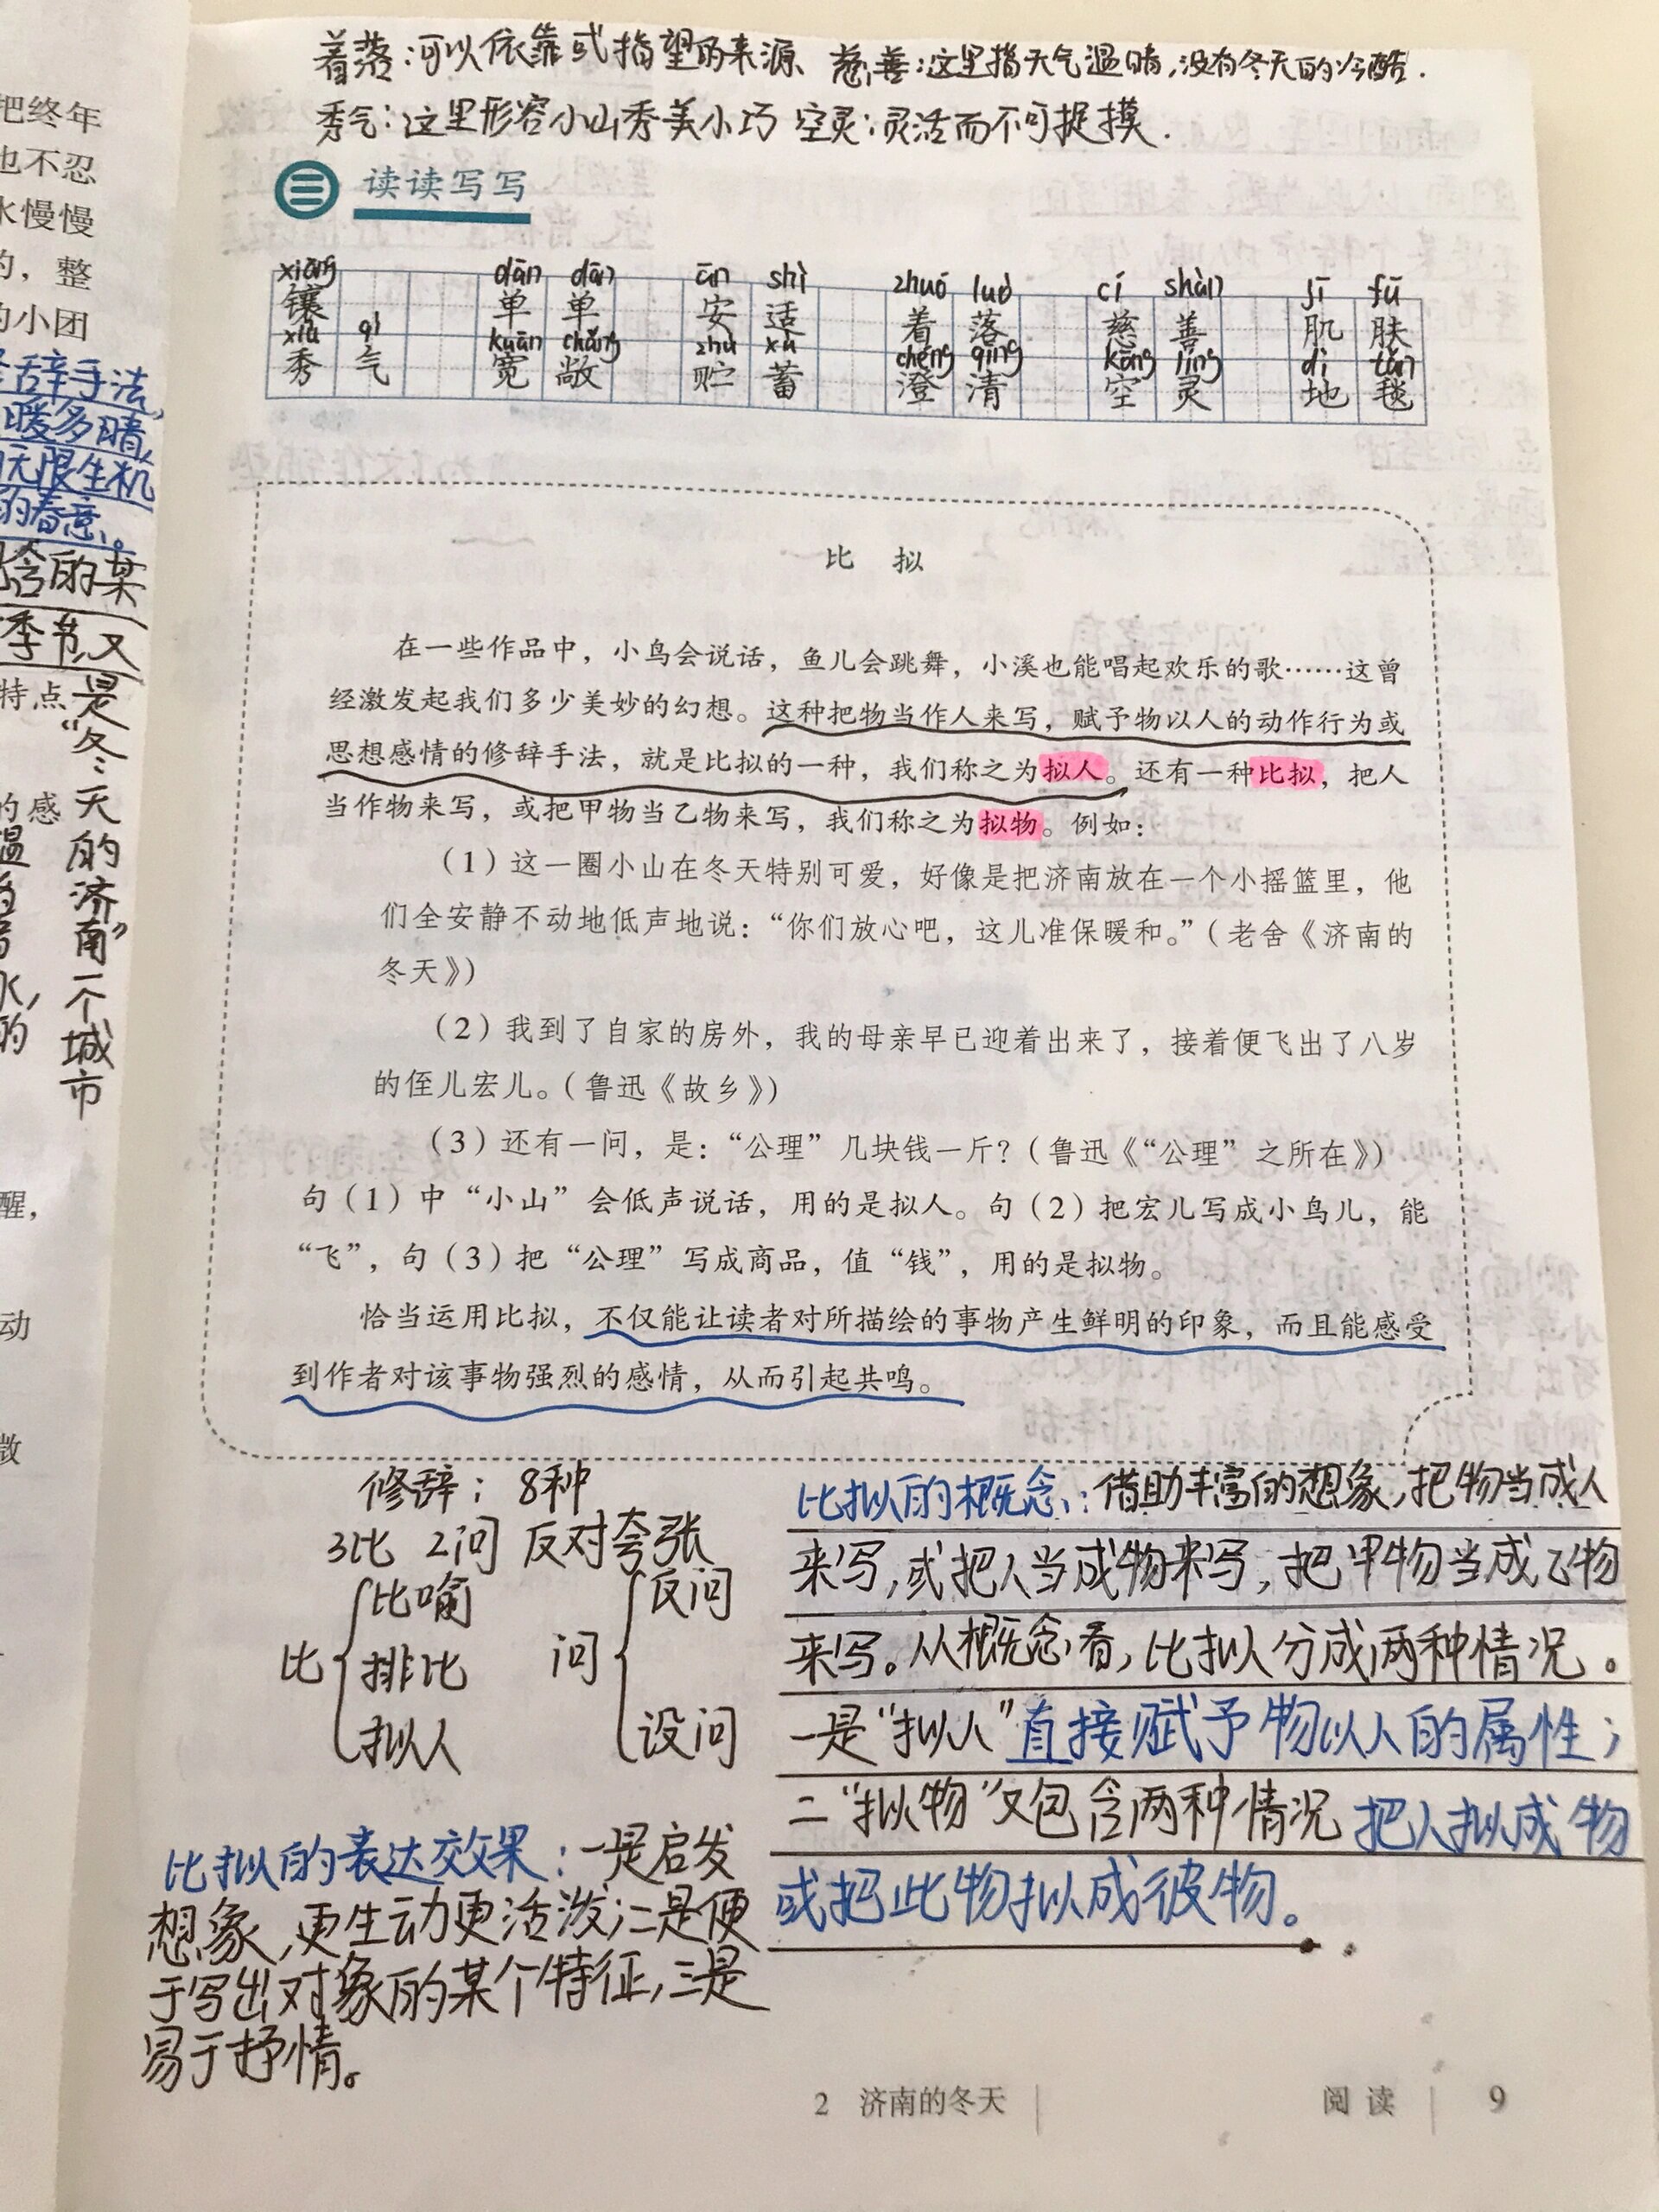 着落：可以依靠或指望的来源 慈善：这里指天气温晴，没有冬天的冷酷.
秀气：这里形容小山秀美小巧 空灵：灵活而不可捉摸.
三 读读写写
xiāng dān dān ān shì zhuó luò cí shàn jī fū
镶 单 单 安 适 着 落 慈 善 肌 肤
xiù qì kuān chǎng zhù xù chéng qīng kōng líng dì tǎn
秀 气 宽 敞 贮 蓄 澄 清 空 灵 地 毯
比 拟
在一些作品中，小鸟会说话，鱼儿会跳舞，小溪也能唱起欢乐的歌……这曾
经激发起我们多少美妙的幻想。这种把物当作人来写，赋予物以人的动作行为或
思想感情的修辞手法，就是比拟的一种，我们称之为拟人。还有一种比拟，把人
当作物来写，或把甲物当乙物来写，我们称之为拟物。例如：
（1）这一圈小山在冬天特别可爱，好像是把济南放在一个小摇篮里，他
们全安静不动地低声地说：“你们放心吧，这儿准保暖和。”（老舍《济南的
冬天》）
（2）我到了自家的房外，我的母亲早已迎着出来了，接着便飞出了八岁
的侄儿宏儿。（鲁迅《故乡》）
（3）还有一问，是：“公理”几块钱一斤？（鲁迅《“公理”之所在》）
句（1）中“小山”会低声说话，用的是拟人。句（2）把宏儿写成小鸟儿，能
“飞”，句（3）把“公理”写成商品，值“钱”，用的是拟物。
恰当运用比拟，不仅能让读者对所描绘的事物产生鲜明的印象，而且能感受
到作者对该事物强烈的感情，从而引起共鸣。
修辞：8种
3比 2问 反对夸张
比 比喻
排比
拟人
问 反问
设问
比拟的表达效果：一是启发
想象，更生动更活泼；二是便
于写出对象的某个特征，三是
易于抒情。
比拟的概念：借助丰富的想象，把物当成人
来写，或把人当成物来写，把甲物当成乙物
来写。从概念看，比拟分成两种情况。
一是“拟人”直接赋予物以人的属性；
二“拟物”又包含两种情况 把人拟成物
或把此物拟成彼物。
2 济南的冬天
阅 读 9
把终年
也不忍
水慢慢
的，整
的小团
辞手法，
暖多晴，
无限生机
的春意。
含的某
季节，又
特点
是“冬天的济南”一个城市
的感
温
水，
的
醒，
动